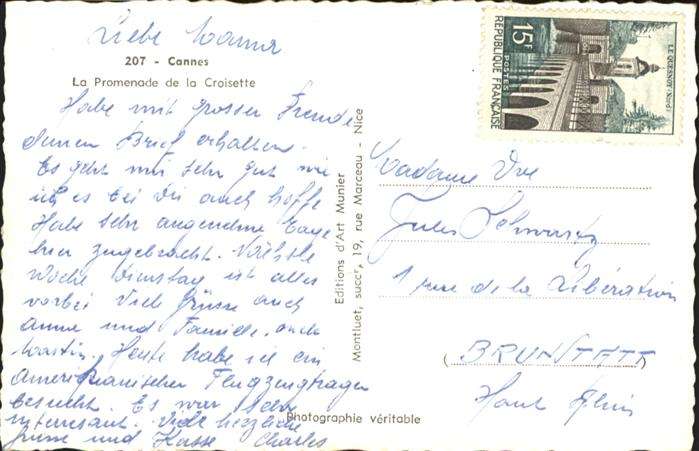 Liebe
207 - Cannes
La Promenade de la Croisette
Habe mit grosser Freude
deinen Brief erhalten.
Es geht mir sehr gut wie
ich es bei dir auch hoffe
Habe sehr angenehme Tage
hier zugebracht. Nächste
Woche Dienstag ist alles
vorbei Viele Grüsse auch
Anne und Familie. auch
Martin. Heute habe ich ein
Amerikanischer Flugzeugtrager
besucht. Es war sehr
interessant. Viele herzliche
Grüsse und Küsse Charles
Editions d'Art Munier
Montluet, succr, 19, rue Marceau - Nice
Photographie véritable
15F
POSTES
REPUBLIQUE FRANÇAISE
LE QUESNOY (Nord)
Madame Vve
Jules Schwartz
1 rue de la Libération
BRUNSTATT
Haut Rhin